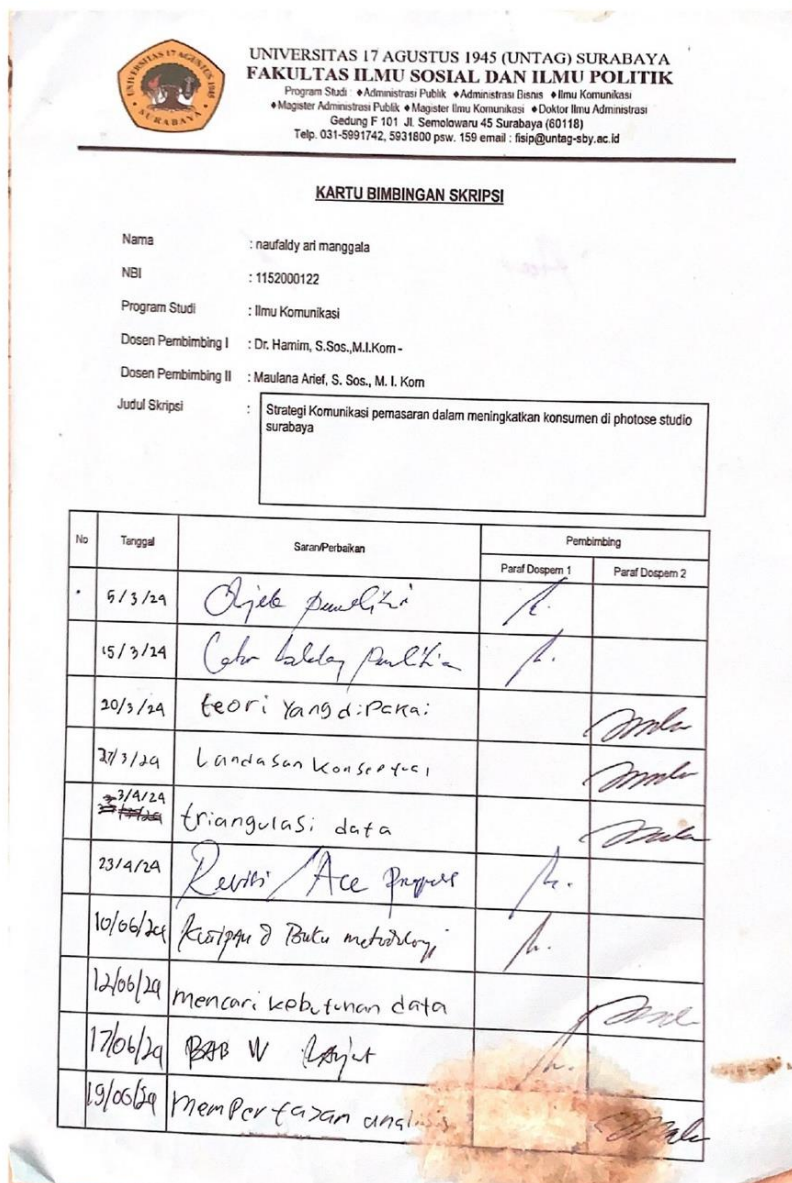 UNIVERSITAS 17 AGUSTUS 1945
SURABAYA
UNIVERSITAS 17 AGUSTUS 1945 (UNTAG) SURABAYA
FAKULTAS ILMU SOSIAL DAN ILMU POLITIK
Program Studi : ♦Administrasi Publik ♦Administrasi Bisnis ♦Ilmu Komunikasi
♦Magister Administrasi Publik ♦Magister Ilmu Komunikasi ♦Doktor Ilmu Administrasi
Gedung F 101 Jl. Semolowaru 45 Surabaya (60118)
Telp. 031-5991742, 5931800 psw. 159 email : fisip@untag-sby.ac.id
KARTU BIMBINGAN SKRIPSI
Nama : naufaldy ari manggala
NBI : 1152000122
Program Studi : Ilmu Komunikasi
Dosen Pembimbing I : Dr. Hamim, S.Sos.,M.I.Kom -
Dosen Pembimbing II : Maulana Arief, S. Sos., M. I. Kom
Judul Skripsi : Strategi Komunikasi pemasaran dalam meningkatkan konsumen di photose studio
surabaya
No Tanggal Saran/Perbaikan Pembimbing
Paraf Dospem 1 Paraf Dospem 2
5/3/24 Objek
15/3/24
20/3/24 teori yang dipakai
27/3/24 Landasan Konseptual
3/4/24
triangulasi data
23/4/24 Revisi / Acc
10/06/24 Kutipan Buku metodologi
12/06/24 mencari kebutuhan data
17/06/24 BAB IV Lanjut
19/06/24 mempertajam analisis